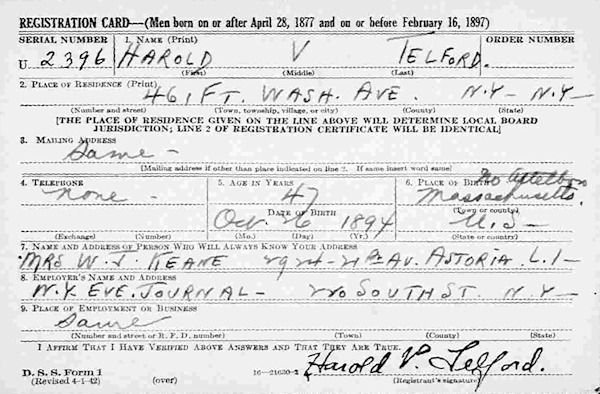 REGISTRATION CARD—(Men born on or after April 28, 1877 and on or before February 16, 1897)
SERIAL NUMBER 1. NAME (Print) ORDER NUMBER
U 2396 HAROLD V TELFORD.
(First) (Middle) (Last)
2. PLACE OF RESIDENCE (Print)
461 FT. WASH. AVE. N.Y.- N.Y-
(Number and street) (Town, township, village, or city) (County) (State)
[THE PLACE OF RESIDENCE GIVEN ON THE LINE ABOVE WILL DETERMINE LOCAL BOARD
JURISDICTION; LINE 2 OF REGISTRATION CERTIFICATE WILL BE IDENTICAL]
3. MAILING ADDRESS
Same -
[Mailing address if other than place indicated on line 2. If same insert word same]
4. TELEPHONE 5. AGE IN YEARS 6. PLACE OF BIRTH
No Attelboro
none - 47 Massachusetts.
DATE OF BIRTH (Town or county)
Oct. 1894 U.S-
(Exchange) (Number) (Mo.) (Day) (Yr.) (State or country)
7. NAME AND ADDRESS OF PERSON WHO WILL ALWAYS KNOW YOUR ADDRESS
MRS W. J. KEANE AV. ASTORIA L.I-
8. EMPLOYER'S NAME AND ADDRESS
N.Y. EVE. JOURNAL- 220 SOUTH ST. N.Y-
9. PLACE OF EMPLOYMENT OR BUSINESS
Same
(Number and street or R. F. D. number) (Town) (County) (State)
I AFFIRM THAT I HAVE VERIFIED ABOVE ANSWERS AND THAT THEY ARE TRUE.
D. S. S. Form 1
(Revised 4-1-42) (over) 16—21630-2 Harold V. Telford.
(Registrant's signature)